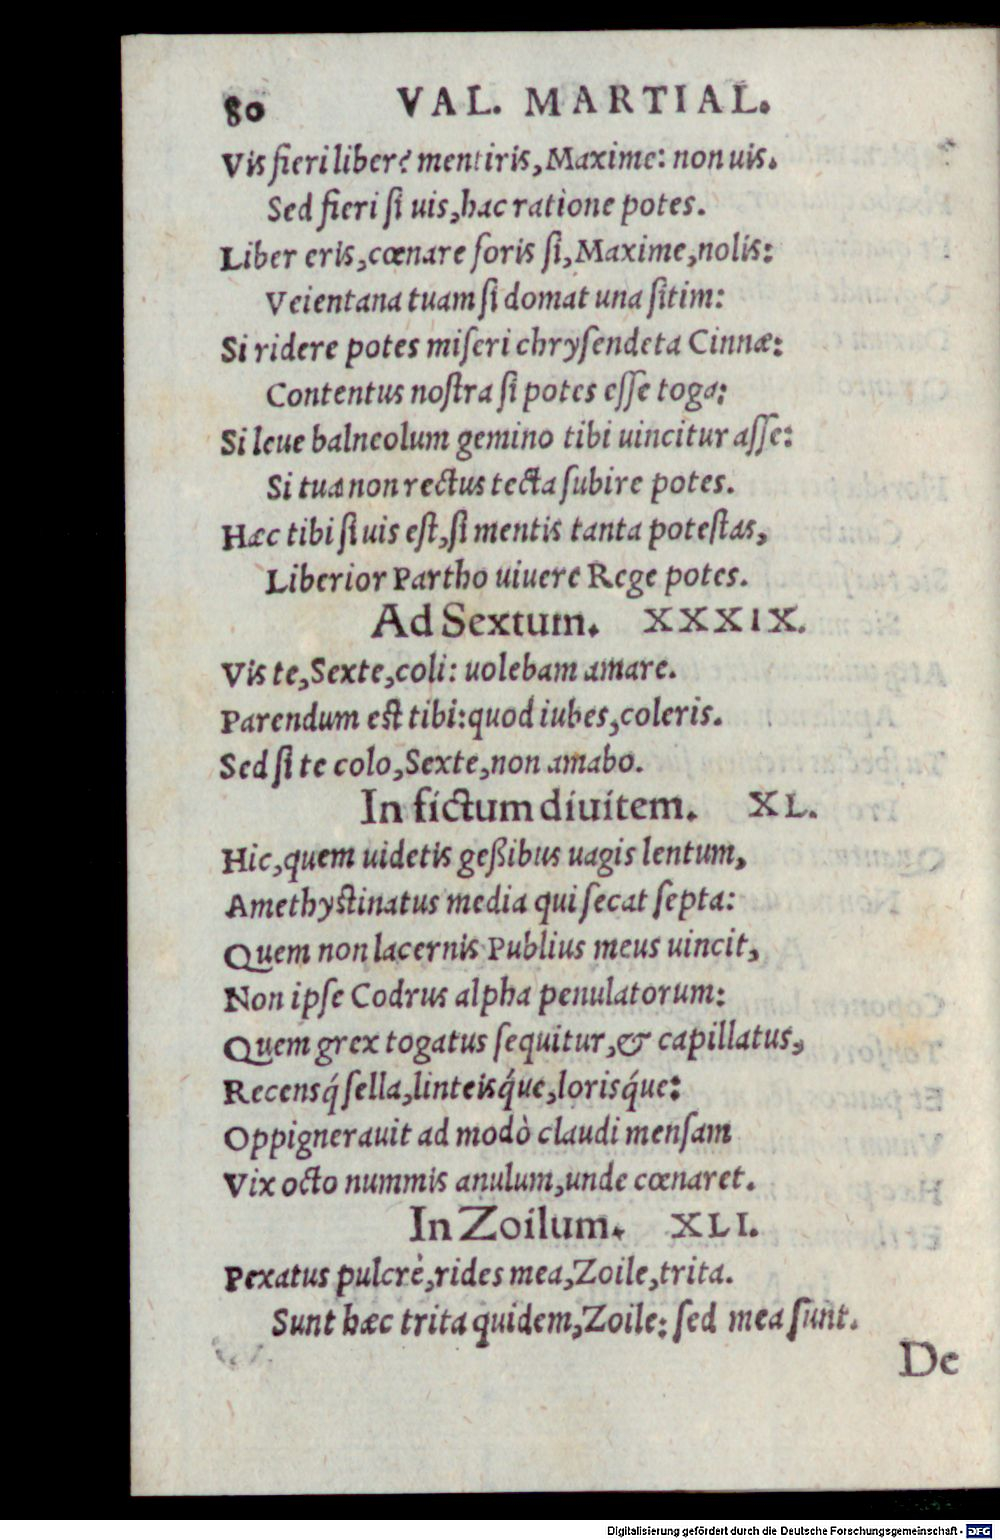 80 VAL. MARTIAL.
Vis fieri liber? mentiris, Maxime: non uis.
Sed fieri si uis, hac ratione potes.
Liber eris, cœnare foris si, Maxime, nolis:
Veientana tuam si domat una sitim:
Si ridere potes miseri chrysendeta Cinnæ:
Contentus nostra si potes esse toga:
Si leue balneolum gemino tibi uincitur asse:
Si tua non rectus tecta subire potes.
Hæc tibi si uis est, si mentis tanta potestas,
Liberior Partho uiuere Rege potes.
Ad Sextum. XXXIX.
Vis te, Sexte, coli: uolebam amare.
Parendum est tibi: quod iubes, coleris.
Sed si te colo, Sexte, non amabo.
In fictum diuitem. XL.
Hic, quem uidetis geßibus uagis lentum,
Amethystinatus media qui secat septa:
Quem non lacernis Publius meus uincit,
Non ipse Codrus alpha penulatorum:
Quem grex togatus sequitur, & capillatus,
Recensq́ sella, linteisq́ue, lorisq́ue:
Oppignerauit ad modò claudi mensam
Vix octo nummis anulum, unde cœnaret.
In Zoilum. XLI.
Pexatus pulcrè, rides mea, Zoile, trita.
Sunt hæc trita quidem, Zoile: sed mea sunt.
De
Digitalisierung gefördert durch die Deutsche Forschungsgemeinschaft - DFG